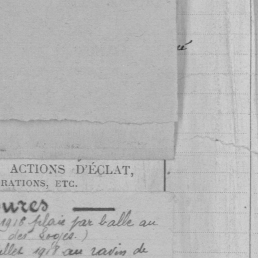 é
ACTIONS D'ÉCLAT,
RATIONS, ETC.
ures
1918 plaie par balle au
des Vosges.)
illet 1918 au ravin de